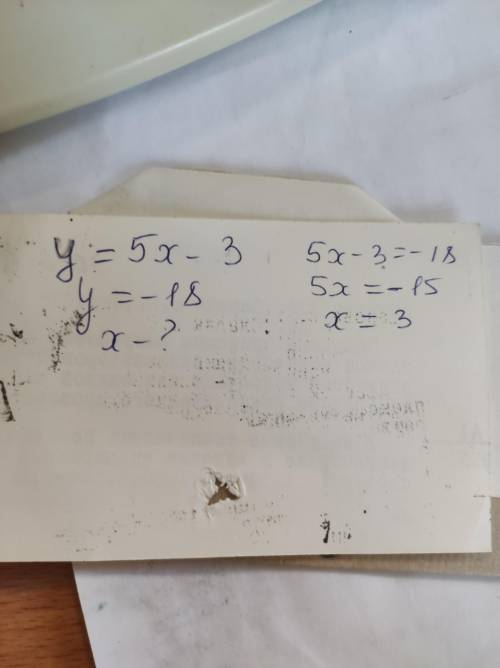 y = 5x - 3
y = -18
x - ?
5x - 3 = -18
5x = -15
x = 3